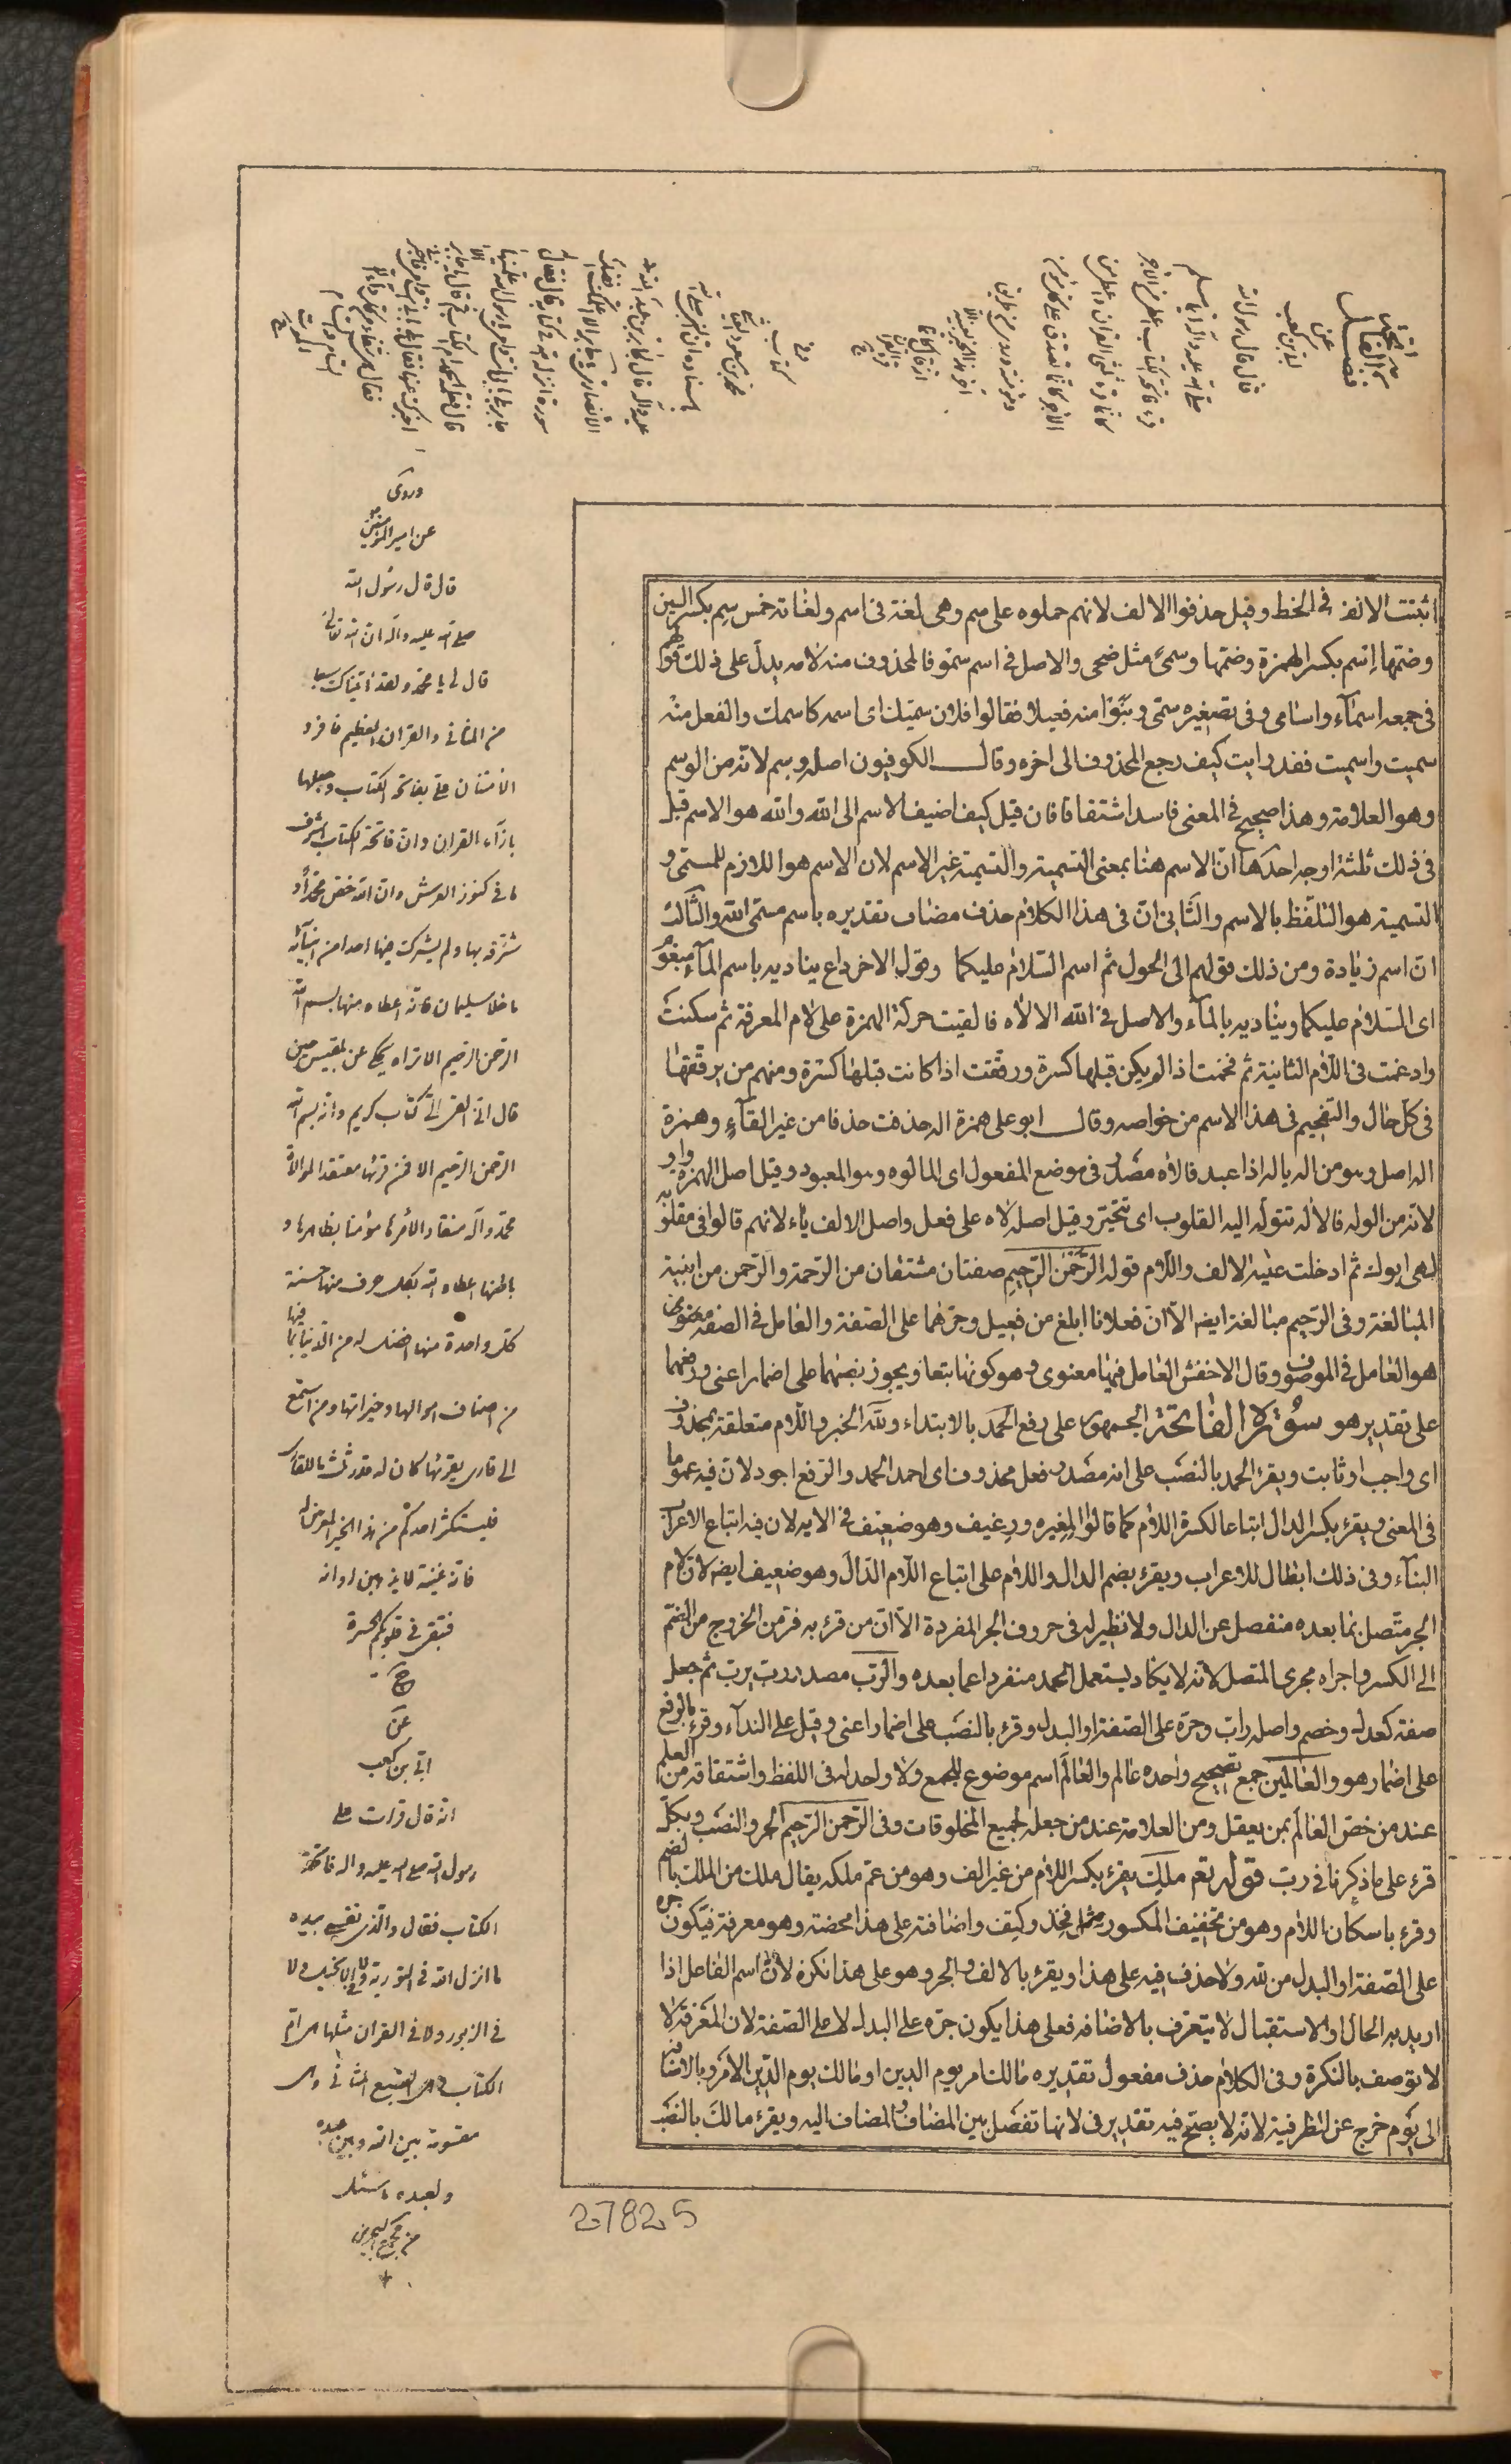 اثبتت الالف فى الخط وقيل حذفوا الالف لانهم حملوه على سم وهى لغة فى اسم ولغاته خمس سم بكسر السين
وضمّها اسم بكسر الهمزة وضمّها وسمىً مثل ضحى والاصل فى اسم سمو فالمحذوف منه لامه يدل على ذلك قولهم
فى جمعه اسمآء واسامى وفى تصغيره سمّى وبنوا منه فعيلا فقالوا فلان سميّك اى اسمه كاسمك والفعل منه
سميت واسميت فقد رايت كيف رجع المحذوف الى اخره وقال الكوفيون اصله وسم لانه من الوسم
وهو العلامة وهذا صحيح فى المعنى فاسد اشتقاقا فان قيل كيف اضيف الاسم الى الله والله هو الاسم قيل
فى ذلك ثلثة اوجه احدها انّ الاسم هنا بمعنى التسمية والتسمية غير الاسم لان الاسم هو اللازم للمسمّى و
التسمية هو التلفّظ بالاسم والثانى انّ فى هذا الكلام حذف مضاف تقديره باسم مسمّى الله والثالث
ان اسم زيادة ومن ذلك قولهم الى الحول ثم اسم السّلام عليكما وقول الاخر داع يناديه باسم المآء مبغوم
اى السّلام عليكما ويناديه بالمآء والاصل فى الله الالاه فالقيت حركة الهمزة على لام المعرفة ثم سكنت
وادغمت فى اللام الثانية ثم فخمت اذا لم يكن قبلها كسرة ورقّقت اذا كانت قبلها كسرة ومنهم من يرقّقها
فى كل حال والتفخيم فى هذا الاسم من خواصه وقال ابو على همزة اله حذفت حذفا من غير القآء وهمزة
اله اصل وهو من اله ياله اذا عبد فالاه مصدر فى موضع المفعول اى المالوه وهو المعبود وقيل اصل الهمزة واو
لانه من الوله فالاله تتولّه اليه القلوب اى تتحيّر وقيل اصله لاه على فعل واصل الالف ياء لانهم قالوا فى مقلوبه
لهى ابوك ثم ادخلت عليه الالف واللام قوله الرّحمن الرّحيم صفتان مشتقان من الرّحمة والرّحمن من ابنية
المبالغة وفى الرّحيم مبالغة ايضه الّا انّ فعلانا ابلغ من فعيل وجرّهما على الصّفة والعامل فى الصفة
هو العامل فى الموصوف وقال الاخفش العامل فيها معنوى وهو كونها تبعا ويجوز نصبهما على اضمار اعنى ورفعهما
على تقدير هو سورة الفاتحة الجمهور على رفع الحمد بالابتداء ولله الخبر واللّام متعلقة بمحذوف
اى واجب او ثابت ويقرء الحمد بالنصب على انه مصدر فعل محذوف اى احمد الحمد والرّفع اجود لان فيه عموما
فى المعنى ويقرء بكسر الدال اتباعا لكسرة اللام كما قالوا المغيره ورغيف وهو ضعيف فى الايه لان فيه اتباع الاعراب
البنآء وفى ذلك ابطال للاعراب ويقرء بضم الدال واللام على اتباع اللّام الدّال وهو ضعيف ايضه لان لام
الجر متّصل بما بعده منفصل عن الدال ولا نظير له فى حروف الجر المفردة الّا انّ من قرء به فرّ من الخروج من الضّم
الى الكسر واجراه مجرى المتصل لانه لا يكاد يستعمل الحمد منفردا عما بعده والرّب مصدر رب يرب ثم جعل
صفة كعدل وخصم واصله راب وجرّه على الصّفة او البدل وقرء بالنصب على اضمار اعنى وقيل على الندآء وقرء بالرفع
على اضمار هو والعالمين جمع تصحيح واحده عالم والعالم اسم موضوع للجمع ولا واحد له فى اللفظ واشتقاقه من العلم
عند من خصّ العالم بمن يعقل ومن العلامة عند من جعله لجميع المخلوقات وفى الرّحمن الرّحيم الجر والنصب وبكلّ
قرء على ما ذكرنا فى ربّ قوله تعم ملك يقرء بكسر اللّام من غير الف وهو من عمّ ملكه يقال ملك من الملك بالضم
وقرء باسكان اللّام وهو من تخفيف المكسور مثل فخذ وكيف واضافته على هذا محضة وهو معرفة فيكون جره
على الصّفة او البدل من لله ولا حذف فيه على هذا ويقرء بالالف والجر وهو على هذا نكرة لان اسم الفاعل اذا
اريد به الحال او الاستقبال لا يتعرف بالاضافه فعلى هذا يكون جرّه على البدل لا على الصّفة لان المعرفة لا
لا توصف بالنكرة وفى الكلام حذف مفعول تقديره مالك امر يوم الدين او مالك يوم الدّين الامر وبالاضافة
الى يوم خرج عن الظرفية لانه لا يصحّ فيه تقدير فى لانها تفصل بين المضاف والمضاف اليه ويقرء مالك بالنصب
وروى
عن امير المؤمنين
قال قال رسول الله
صلى الله عليه واله ان الله تعالى
قال لى يا محمد ولقد اتيناك سبعا
من المثانى والقران العظيم فافرد
الامتنان على بفاتحة الكتاب وجعلها
بازآء القران وان فاتحة الكتاب اشرف
ما فى كنوز العرش وان الله خص محمداً و
شرّفه بها ولم يشرك فيها احدا من انبيآئه
ما خلا سليمان فانه اعطاه منها بسم الله
الرّحمن الرّحيم الا تراه يحكى عن بلقيس حين
قال انى القى الىّ كتاب كريم وانه بسم الله
الرحمن الرحيم الا فمن قرئها معتقدا لموالاة
محمد وآله منقادا لامرها مؤمنا بظاهرها و
باطنها اعطاه الله بكل حرف منها حسنة
كل واحدة منها افضل له من الدنيا بما فيها
من اصناف اموالها وخيراتها ومن استمع
الى قارى يقرئها كان له قدر ثلث ما للقارى
فليستكثر احدكم من هذا الخير المعرض له
فانه غنيمة لا يذهبن اوانه
فتبقى فى قلوبكم الحسرة
عن
ابى بن كعب
انه قال قرات على
رسول الله صلى الله عليه واله فاتحة
الكتاب فقال والذى نفسى بيده
ما انزل الله فى التورية ولا فى الانجيل ولا
فى الزبور ولا فى القران مثلها هى ام
الكتاب وهى السّبع المثانى وهى
مقسومة بين الله وبين عبده
ولعبده ما سئل
من مجمع البحرين
27825